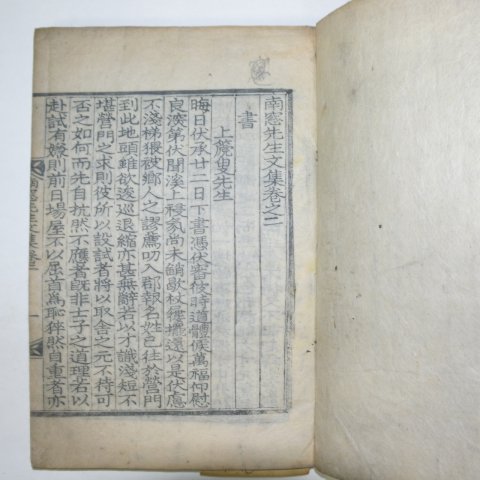 南窓先生文集卷之二
書
上篪叟先生
晦日伏承廿二日下書憑伏審後時道體候萬福仰慰
良深第伏聞溪上稷家尚未餉歇杖屨擺還以是伏慮
不淺梯猥被鄉人之謬薦叨入郡報名姓已往於營門
到此地頭雖欲逡巡退縮亦甚無辭者以才識淺短不
堪營門之求則彼所以設試者將以取舍之元不待可
否之如何而先自抗然不應者旣非士子之道理若以
赴試有嫌則前日場屋不以屈首爲恥恘然自重者亦
南窓先生文集卷二